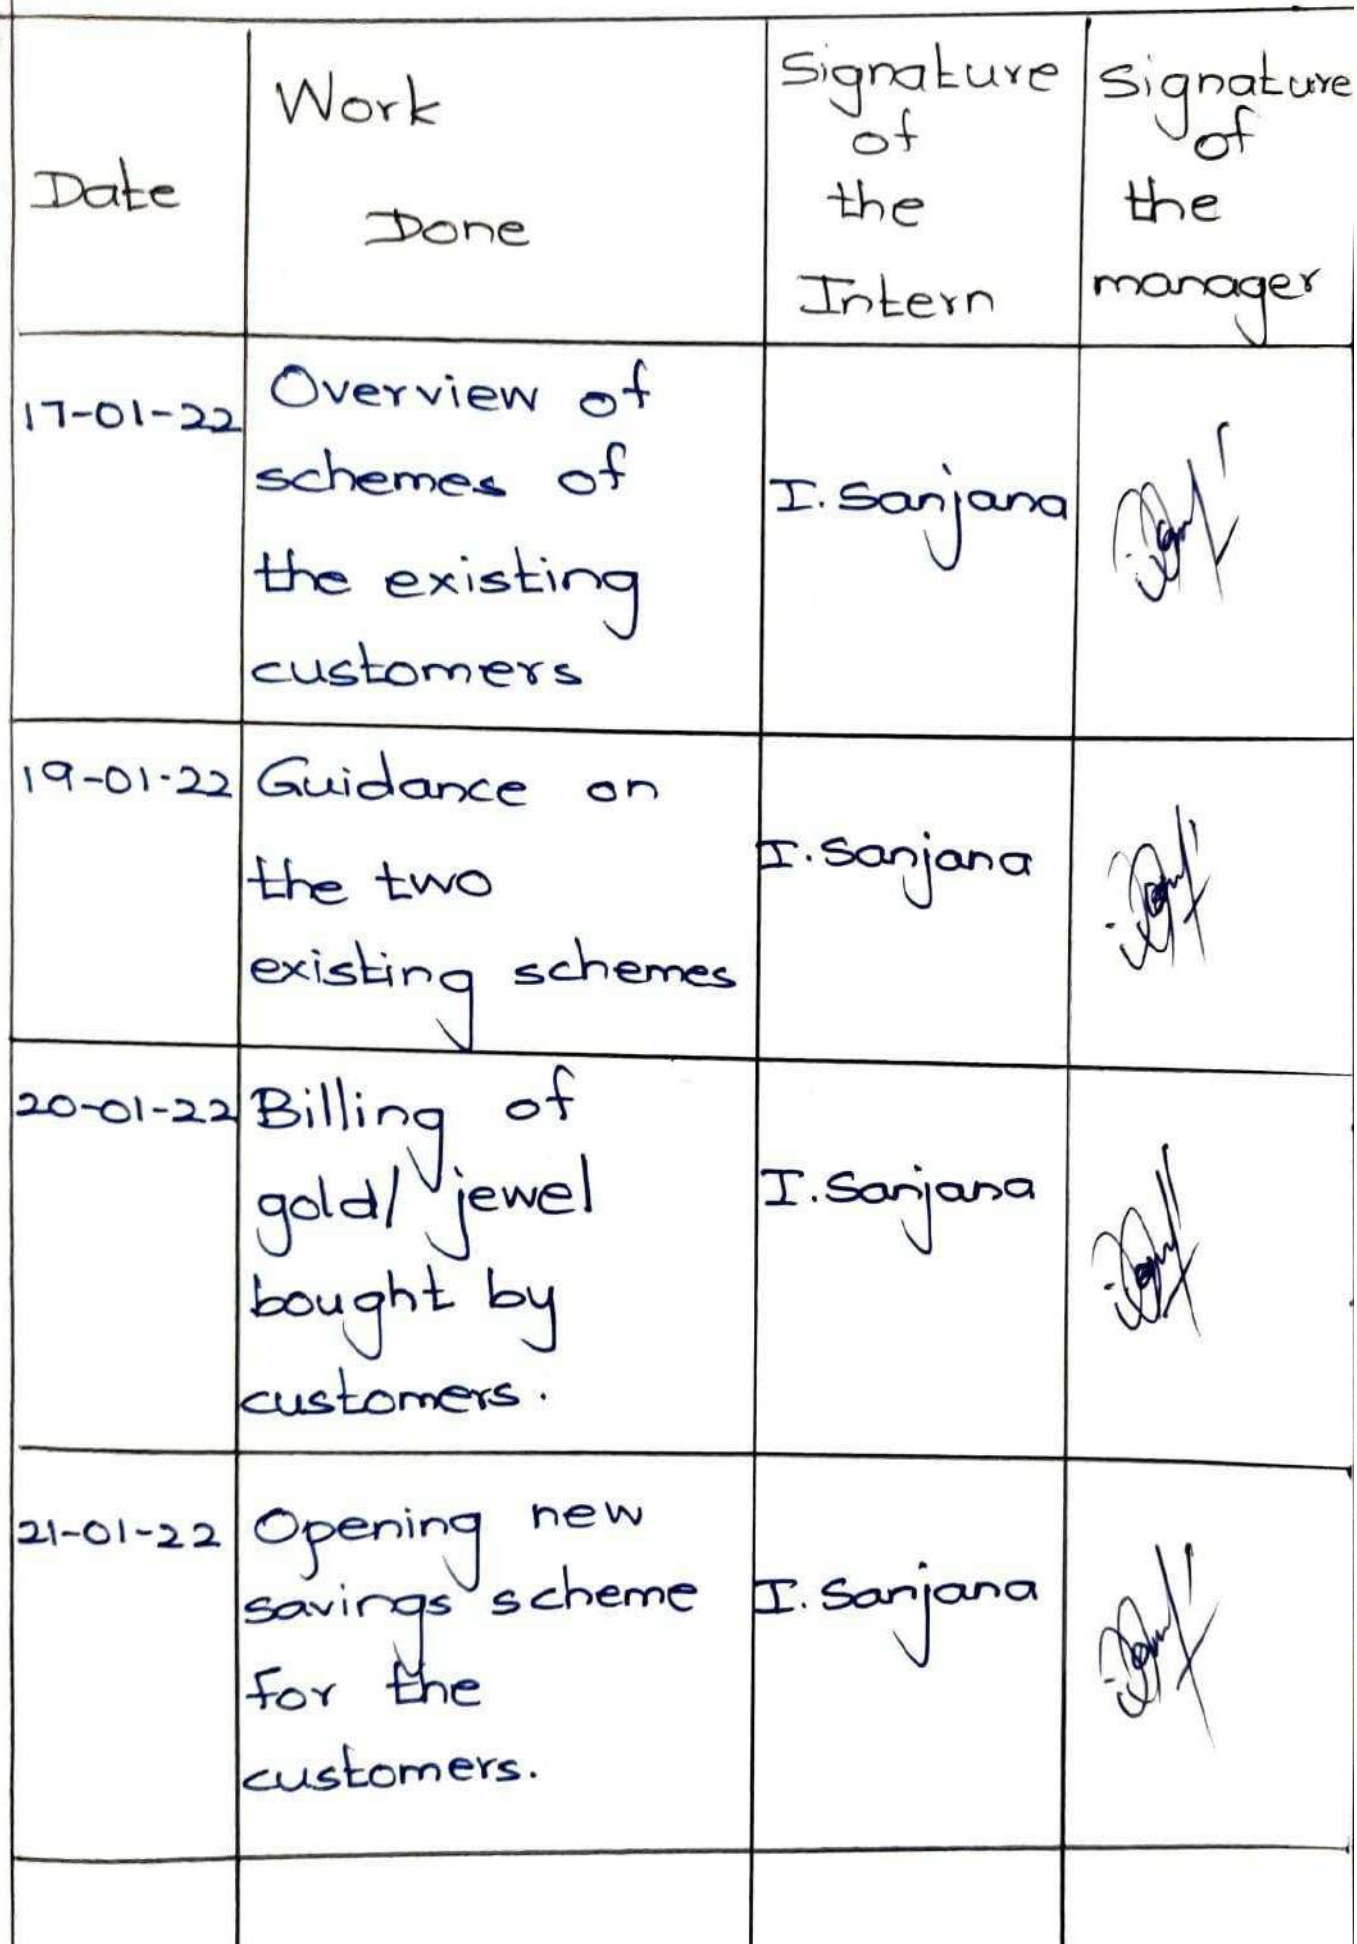 Date
Work
Done
Signature
of
the
Intern
Signature
of
the
manager
17-01-22
Overview of
schemes of
the existing
customers
I. Sanjana
19-01-22
Guidance on
the two
existing schemes
I. Sanjana
20-01-22
Billing of
gold/ jewel
bought by
customers.
I. Sanjana
21-01-22
Opening new
savings scheme
for the
customers.
I. Sanjana